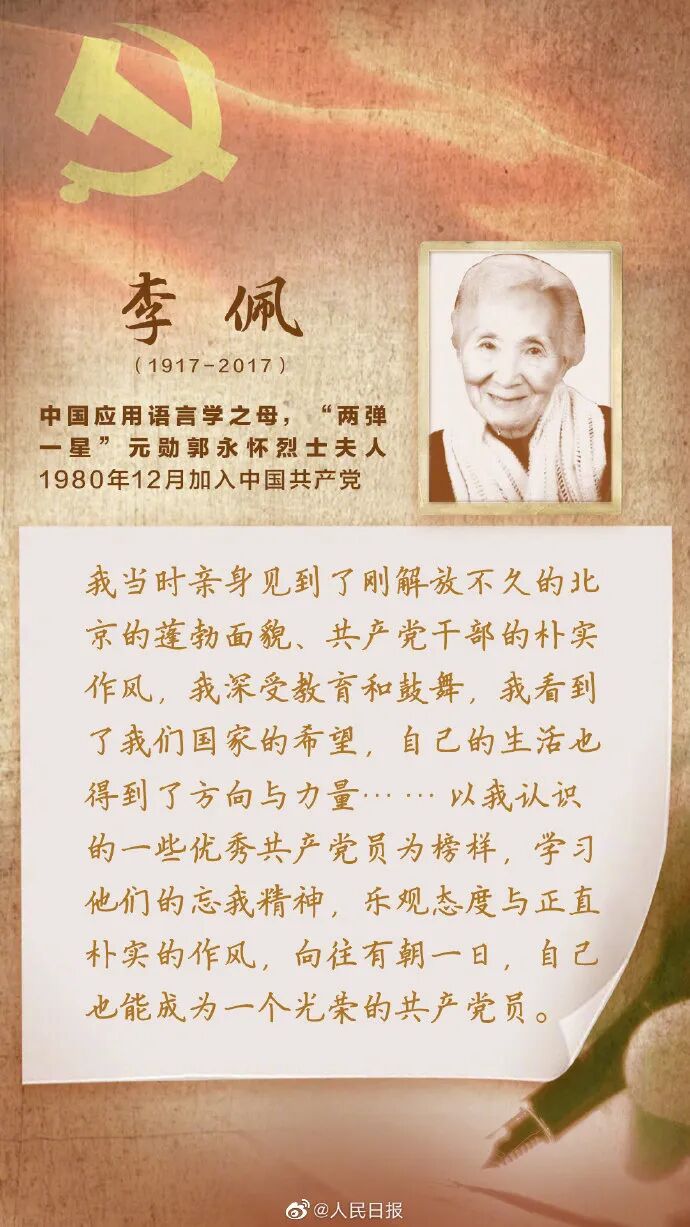 李佩
（1917-2017）
中国应用语言学之母，“两弹
一星”元勋郭永怀烈士夫人
1980年12月加入中国共产党
我当时亲身见到了刚解放不久的北
京的蓬勃面貌、共产党干部的朴实
作风，我深受教育和鼓舞，我看到
了我们国家的希望，自己的生活也
得到了方向与力量……以我认识
的一些优秀共产党员为榜样，学习
他们的忘我精神，乐观态度与正直
朴实的作风，向往有朝一日，自己
也能成为一个光荣的共产党员。
@人民日报